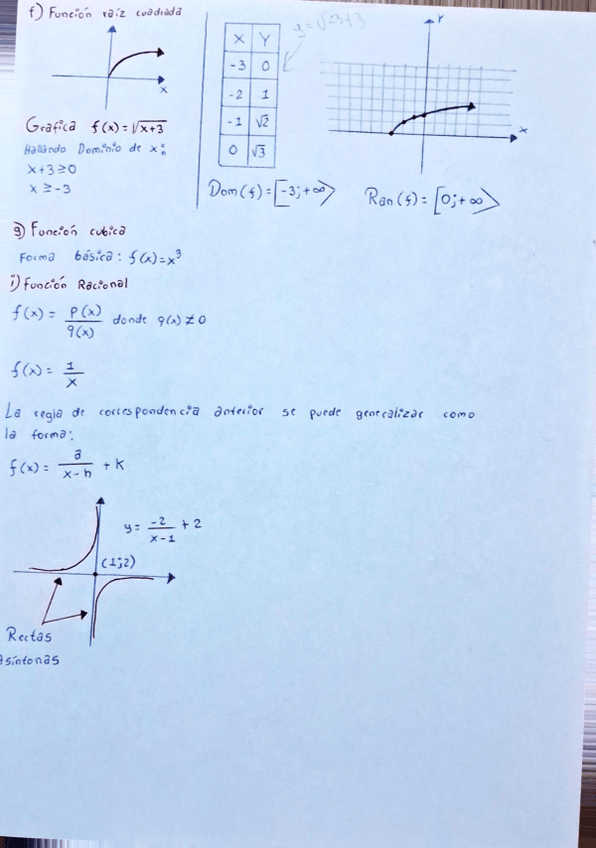 f) Función raíz cuadrada
x
Grafica f(x)=√x+3
Hallando Dominio de x:
x+3≥0
x≥-3
X Y
-3 0
-2 1
-1 √2
0 √3
y=√-3+3
Y
x
Dom(f)=[-3;+∞>
Ran(f)=[0;+∞>
g) Función cubica
Forma básica: f(x)=x³
i) Función Racional
f(x)= P(x)/q(x) donde q(x)≠0
f(x)= 1/x
La regla de correspondencia anterior se puede generalizar como
la forma:
f(x)= a/x-h + k
y= -2/x-1 + 2
(1;2)
Rectas
asíntonas